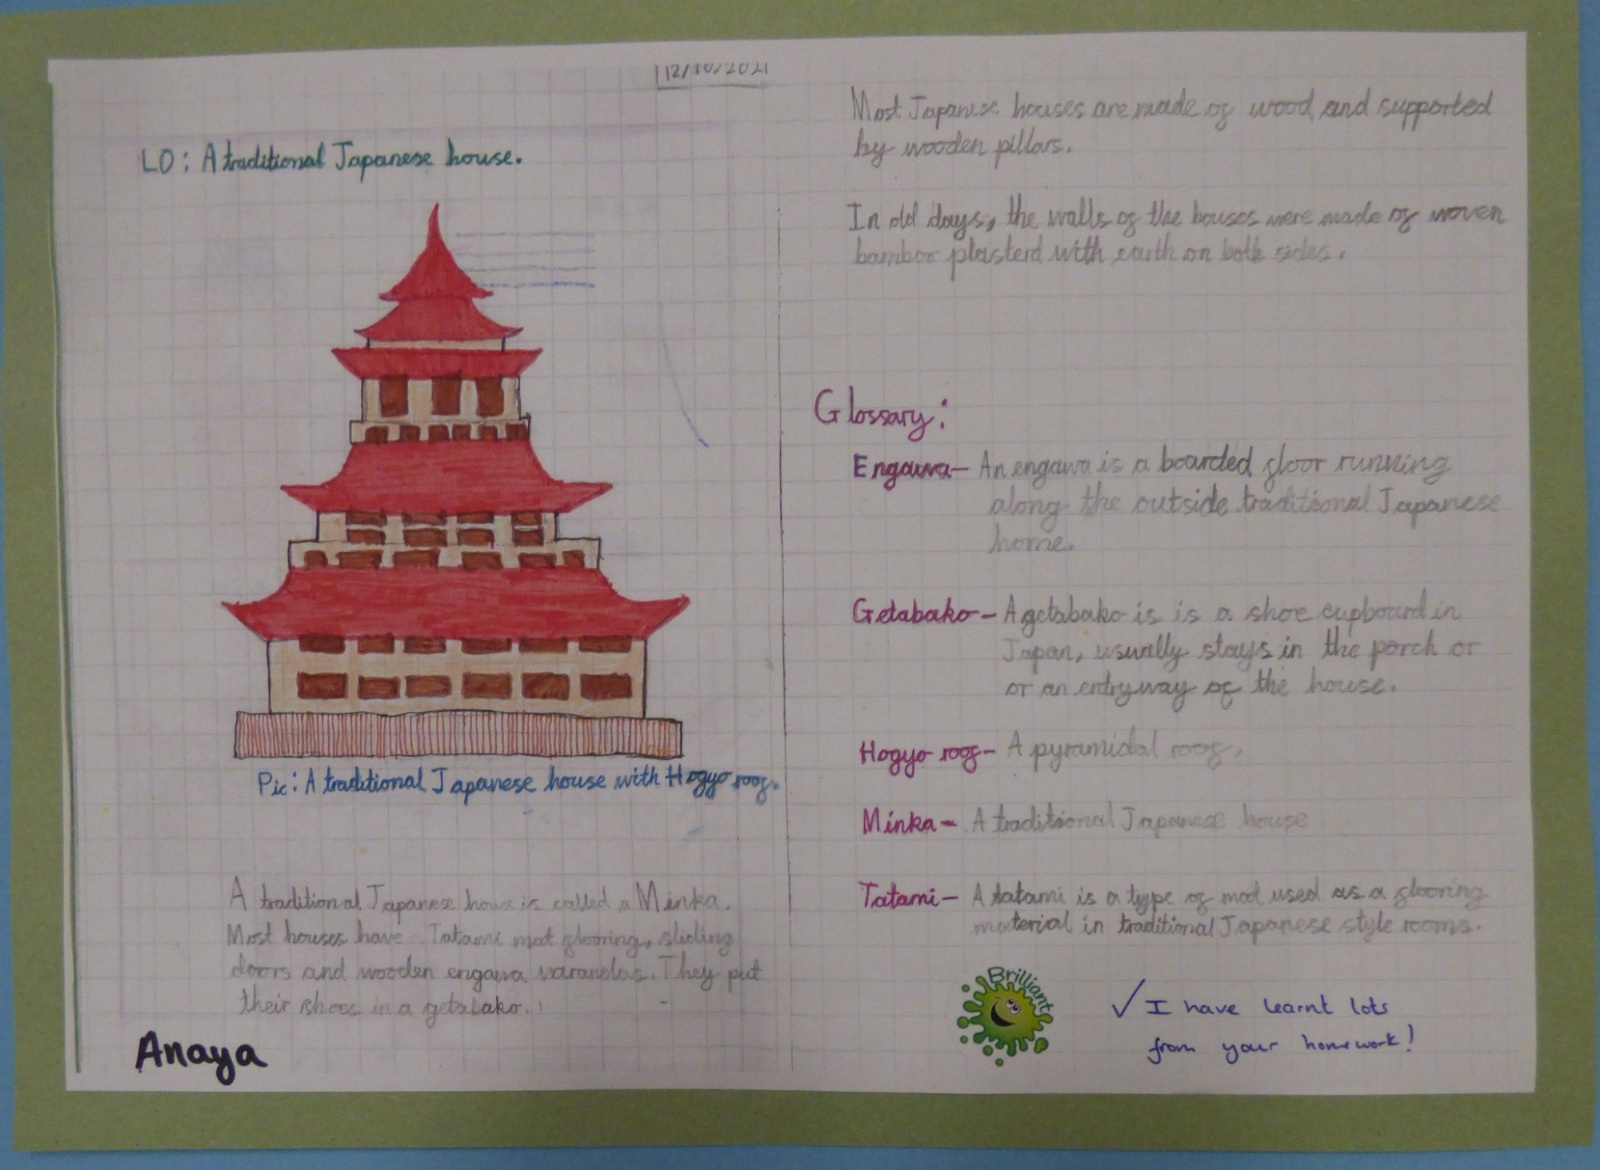 12/10/2021
LO: A traditional Japanese house.
Pic: A traditional Japanese house with Hogyo roof.
A traditional Japanese house is called a Minka.
Most houses have Tatami mat flooring, sliding
doors and wooden engawa varandas. They put
their shoes in a getabako.
Anaya
Most Japanese houses are made of wood and supported
by wooden pillars.
In old days, the walls of the houses were made of woven
bamboo plasterd with earth on both sides.
Glossary:
Engawa- An engawa is a boarded floor running
along the outside traditional Japanese
home.
Getabako- A getabako is is a shoe cupboard in
Japan, usually stays in the porch or
or an entryway of the house.
Hogyo roof- A pyramidal roof.
Minka- A traditional Japanese house
Tatami- A tatami is a type of mat used as a flooring
material in traditional Japanese style rooms.
Brilliant
✓ I have learnt lots
from your homework!